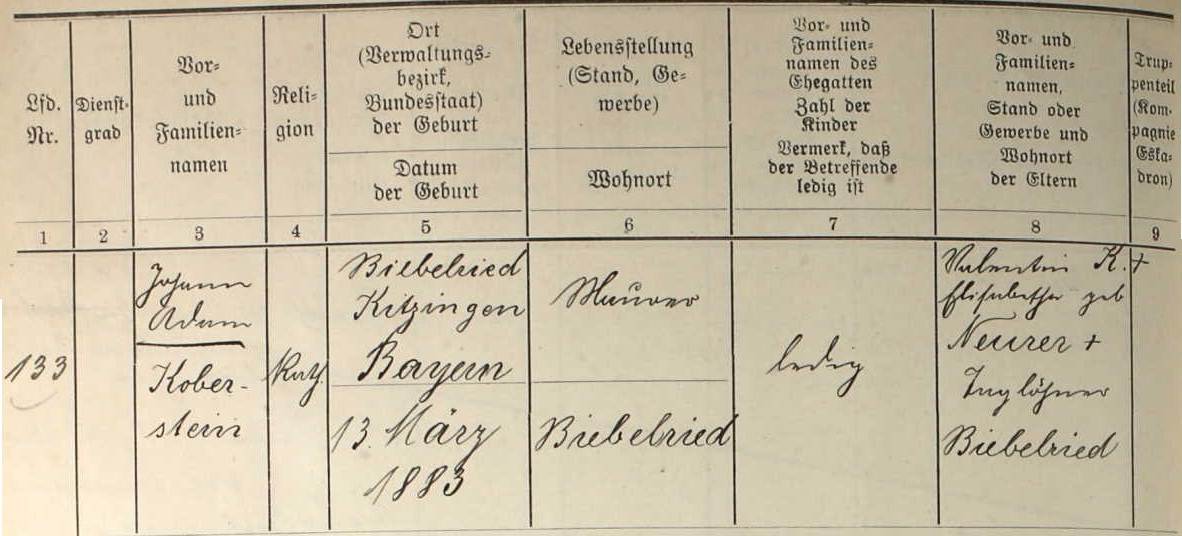 Lfd.
Nr.
Dienst-
grad
Vor-
und
Familien-
namen
Reli-
gion
Ort
(Verwaltungs-
bezirk,
Bundesstaat)
der Geburt
Datum
der Geburt
Lebensstellung
(Stand, Ge-
werbe)
Wohnort
Vor- und
Familien-
namen des
Ehegatten
Zahl der
Kinder
Vermerk, daß
der Betreffende
ledig ist
Vor- und
Familien-
namen,
Stand oder
Gewerbe und
Wohnort
der Eltern
Trup-
penteil
(Kom-
pagnie
Eska-
dron)
1 2 3 4 5 6 7 8 9
133
Johann
Adam
Kober-
stein
Kath.
Biebelried
Kitzingen
Bayern
13. März
1883
Maurer
Biebelried
ledig
Valentin K. +
Elisabetha geb
Neurer +
Taglöhner
Biebelried